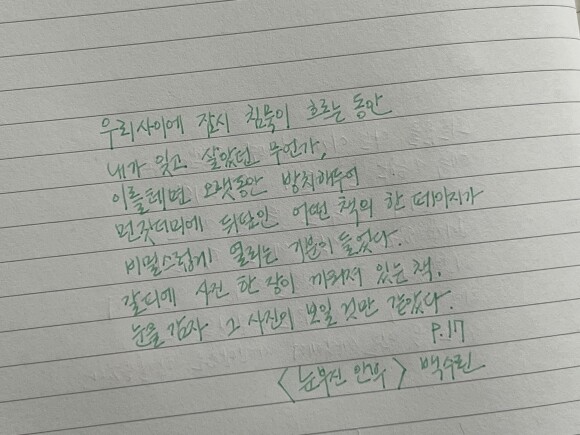 우리 사이에 잠시 침묵이 흐르는 동안
내가 잊고 살았던 무언가,
이를테면 오랫동안 방치해두어
먼짓더미에 뒤덮인 어떤 책의 한 페이지가
비밀스럽게 열리는 기분이 들었다.
갈피에 사진 한 장이 끼워져 있는 책.
눈을 감자 그 사진이 보일 것만 같았다.
P.17
<눈부신 안부> 백수린